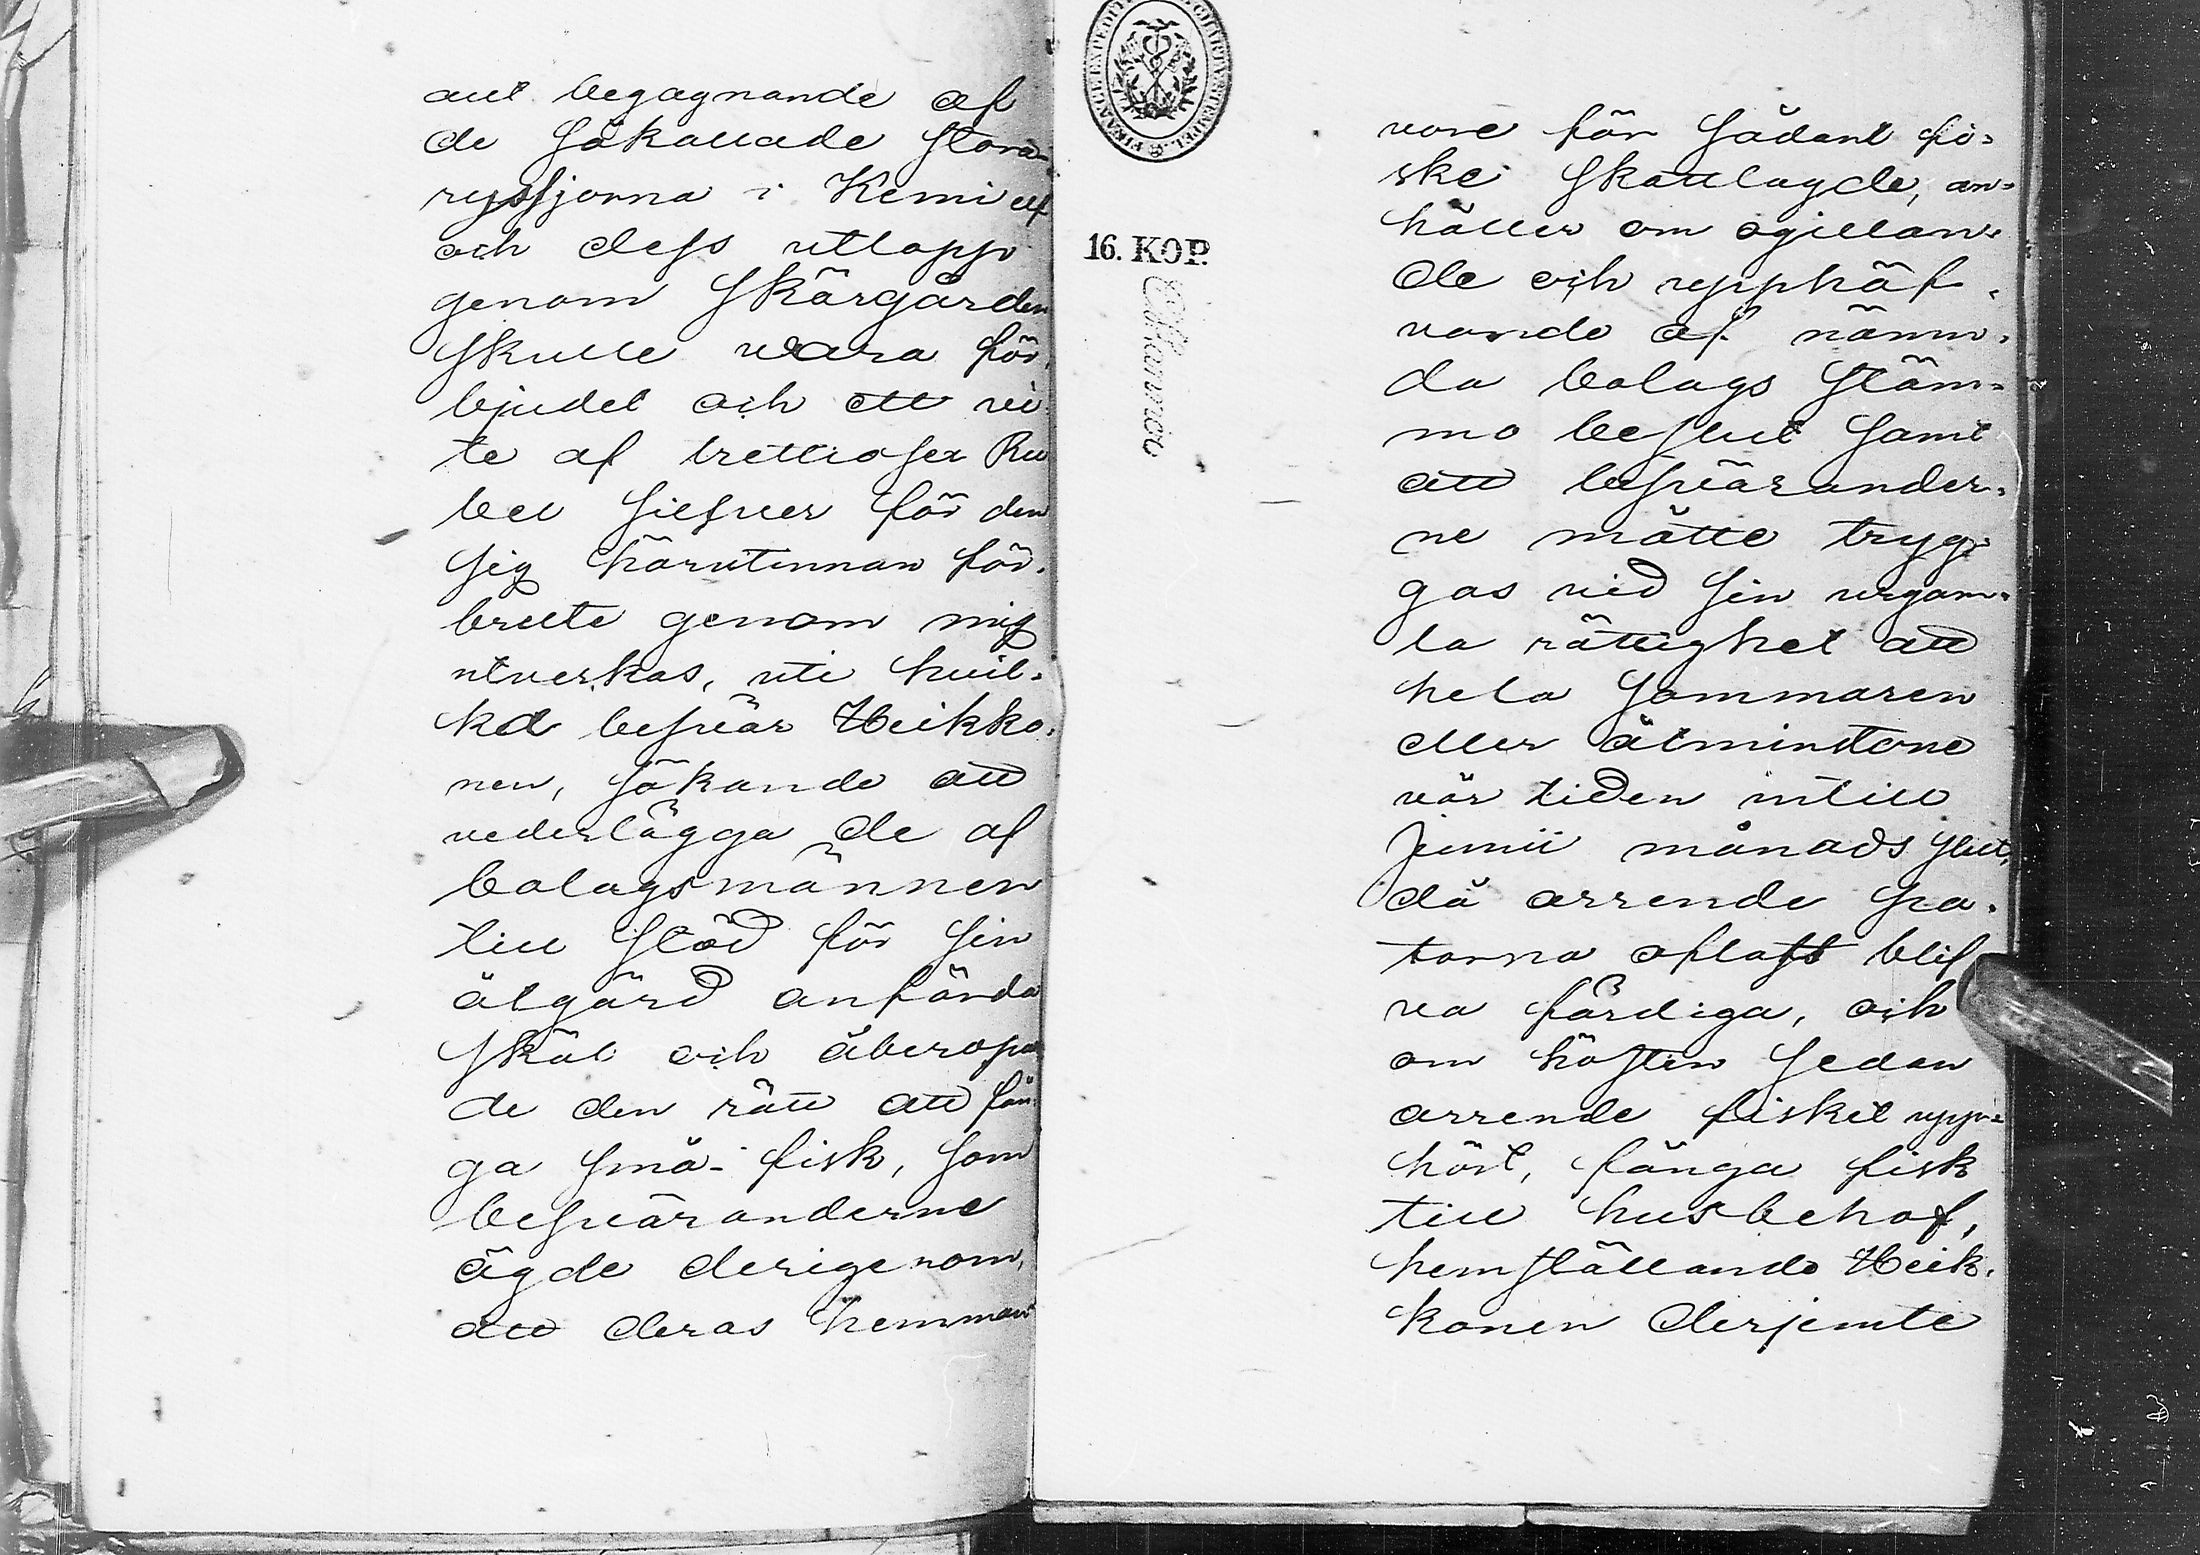 allt begagnande af
de såkallade stora
ryssjorna i Kemi elf
och dess utlopp
genom skärgården
skulle wara för¬
bjudet och ett vi¬
te af trettiosex Ru
bel silfver för den
sig härutinnan för¬
brutte genom mig
utverkas, uti hvil¬
ka besvär Heikko¬
nen, sökande att
vederlägga de af
bolagsmännen
till stöd för sin
åtgärd anförda
skäl och åberopa
de den rätt att fån¬
ga små-fisk, som
besväranderne
ägde derigenom,
att deras hemman
16. KOP.
vore för sådant fi¬
ske skattlagde, an¬
håller om ogillan¬
de och upphäf¬
vande af nämn¬
da bolags stäm¬
mo beslut samt
att besvärander¬
ne måtte tryg¬
gas vid sin urgam¬
la rättighet att
hela sommaren
eller åtminstone
vår tiden intill
Junii månads slut,
då arrende pa¬
torna oftast blif
va färdiga, och
om hösten sedan
arrende fisket upp¬
hört, fånga fisk
till husbehof,
hemställande Heik¬
konen derjemte